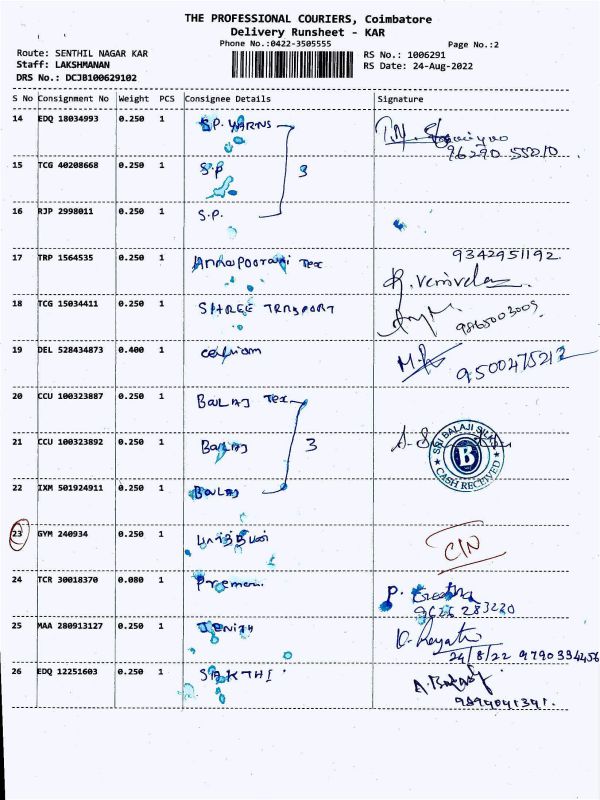 THE PROFESSIONAL COURIERS, Coimbatore
Delivery Runsheet - KAR
Phone No.:0422-3505555
Page No.:2
Route: SENTHIL NAGAR KAR
Staff: LAKSHMANAN
DRS No.: DCJB100629102
RS No.: 1006291
RS Date: 24-Aug-2022
S No Consignment No Weight PCS Consignee Details Signature
14 EDQ 18034993 0.250 1 S.P. YARNS
96290 55210
15 TCG 40208668 0.250 1 S.P 3
16 RJP 2998011 0.250 1 S.P.
17 TRP 1564535 0.250 1 Annapoorani Tex 9342951192
18 TCG 15034411 0.250 1 SHREE TRANSPORT
9865003009
19 DEL 528434873 0.400 1
9500475212
20 CCU 100323887 0.250 1 BALAJ Tex
21 CCU 100323892 0.250 1 BALAJ 3
SRI BALAJI SILKS
B
CASH RECEIVED
22 IXM 501924911 0.250 1 BALAJ
23 GYM 240934 0.250 1 CIN
24 TCR 30018370 0.080 1 Premani P. Geetha
9626 283220
25 MAA 280913127 0.250 1 JENITH
24/8/22 9790394456
26 EDQ 12251603 0.250 1 SAKTHI A. Balaji
9894041391.